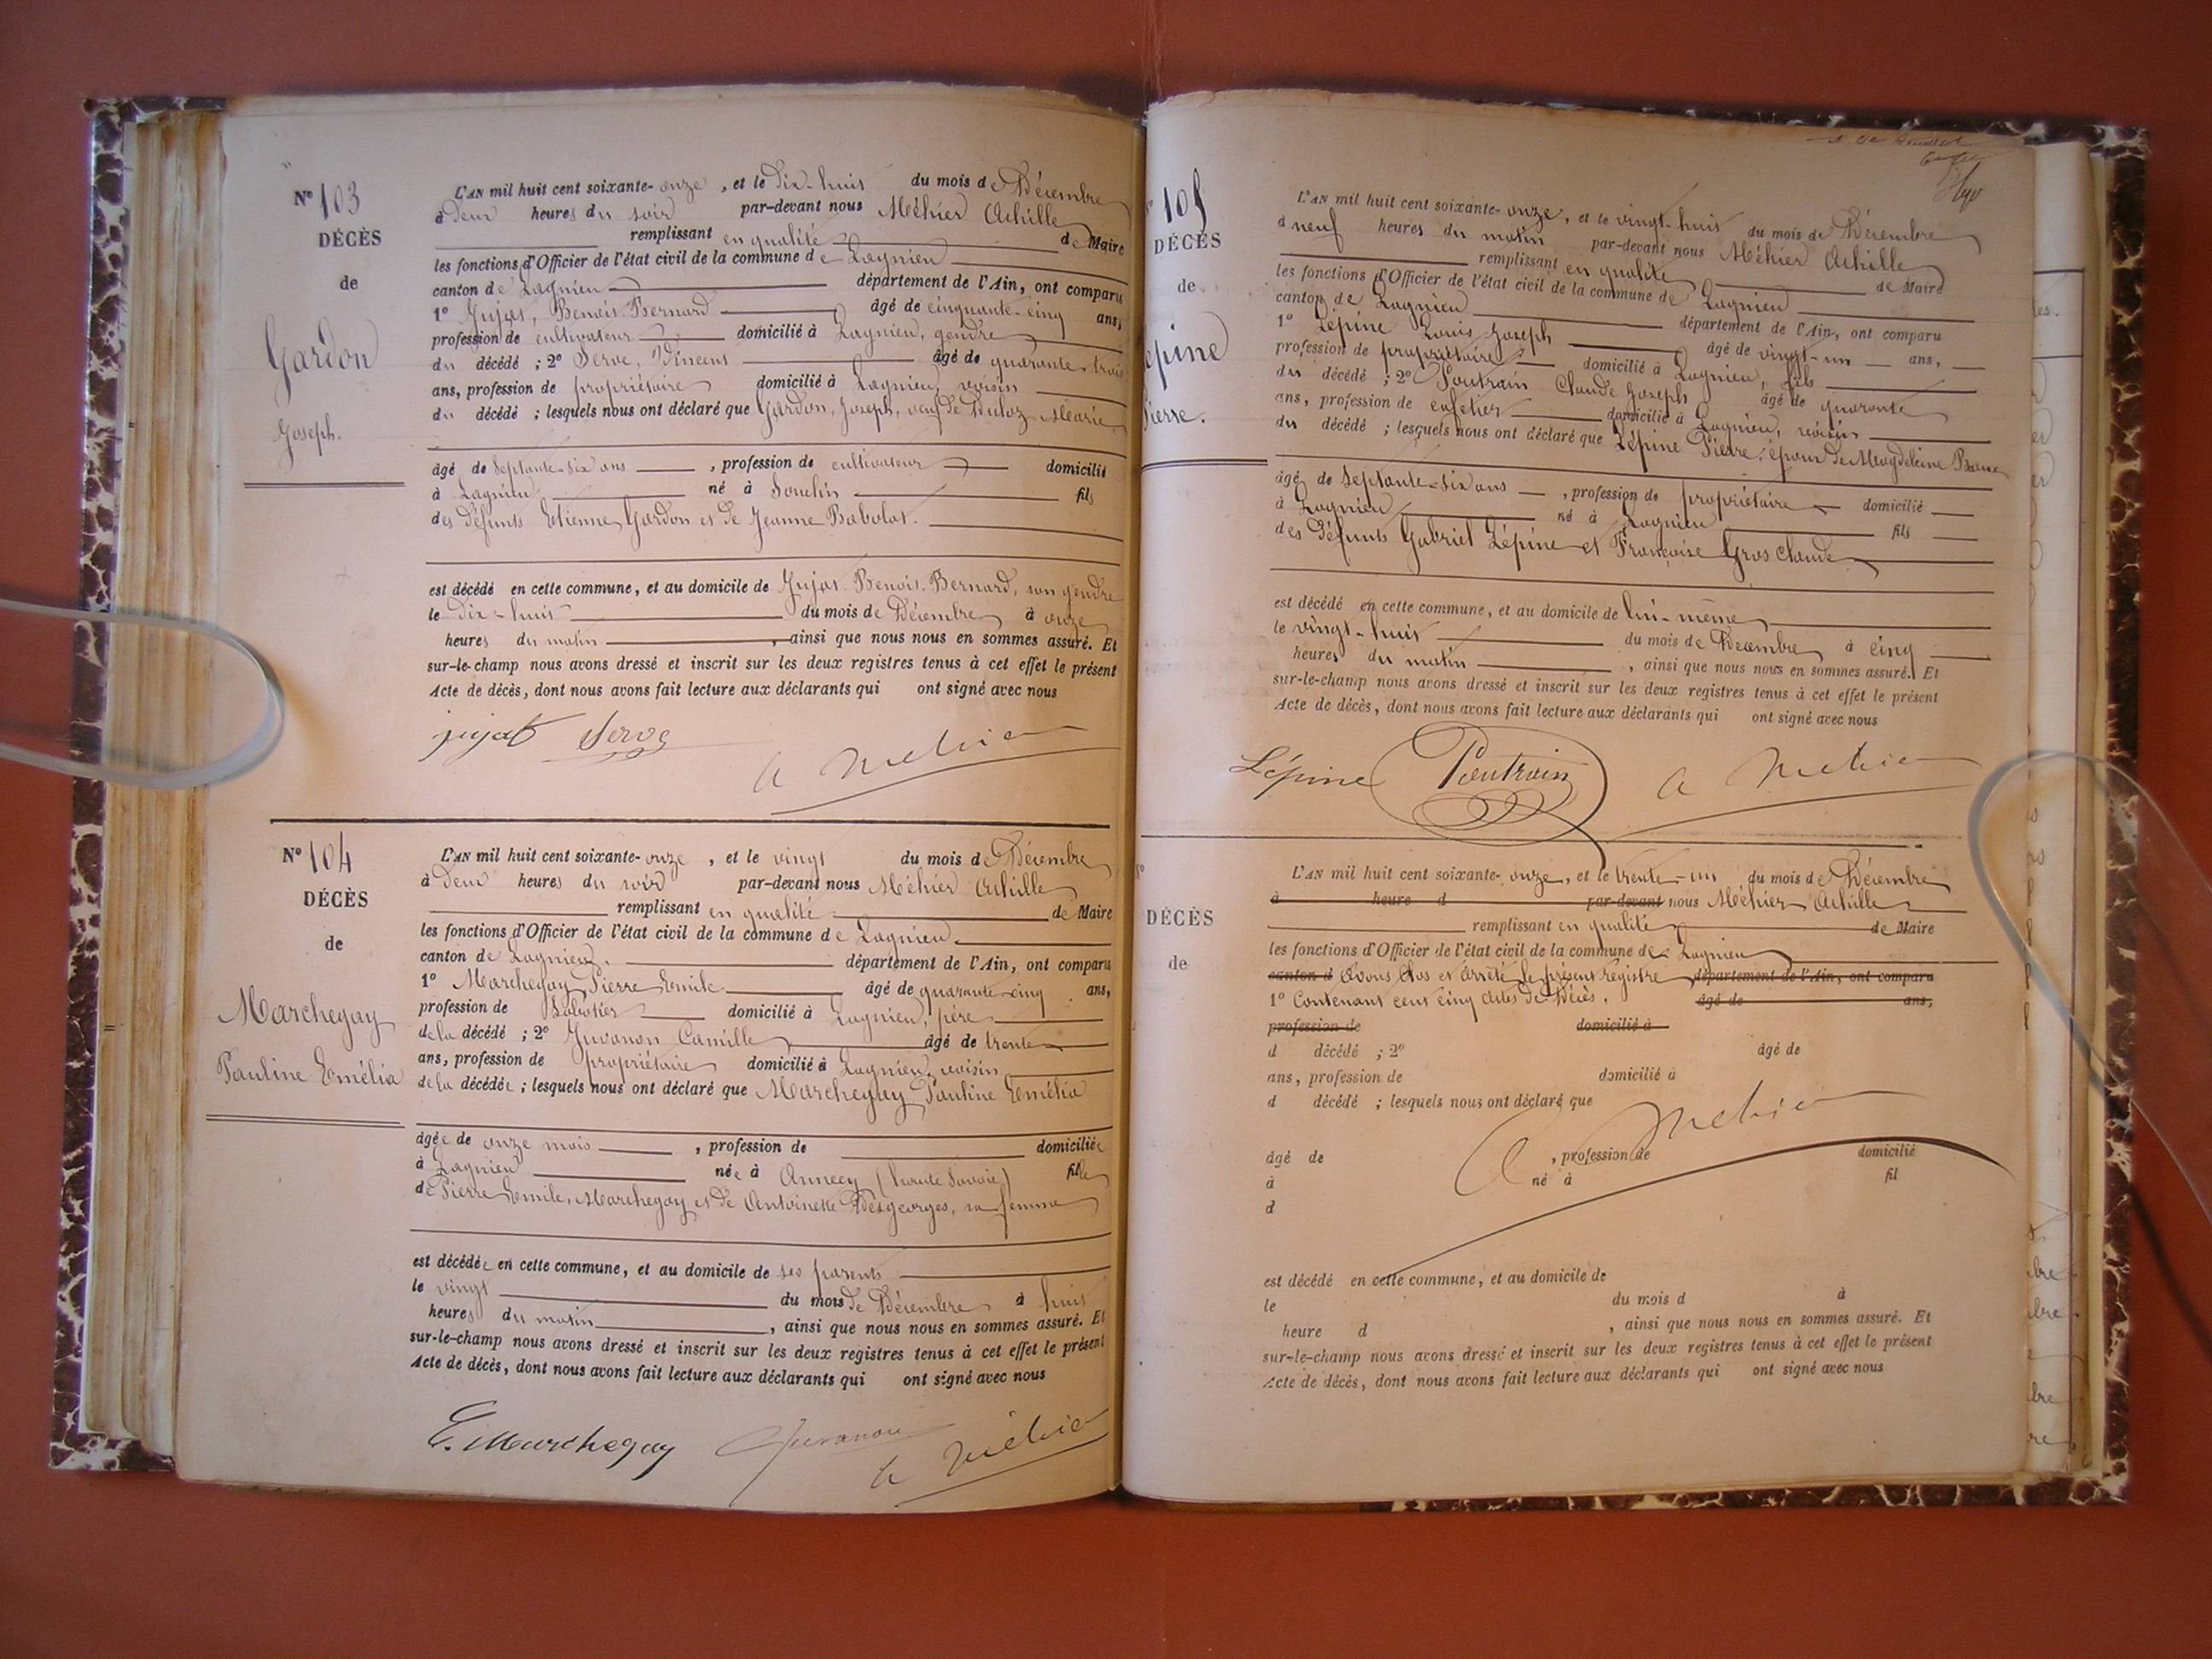 N° 103
DÉCÈS
de
Gardon
Joseph.
L'AN mil huit cent soixante-onze, et le dix-huit du mois de Décembre
à deux heures du soir par-devant nous Méhier Achille
remplissant en qualité de Maire
les fonctions d'Officier de l'état civil de la commune de Lagnieu
canton de Lagnieu département de l'Ain, ont comparu
1° Jujat, Benoit Bernard âgé de cinquante-cinq ans,
profession de cultivateur domicilié à Lagnieu, gendre
du décédé ; 2° Serve, Vincent âgé de quarante trois
ans, profession de propriétaire domicilié à Lagnieu, voisin
du décédé ; lesquels nous ont déclaré que Gardon, Joseph, veuf de Buloz Marie
âgé de septante-six ans, profession de cultivateur domicilié
à Lagnieu né à Souclin fils
des défunts Etienne Gardon et de Jeanne Babolat.
est décédé en cette commune, et au domicile de Jujat Benoit Bernard, son gendre
le dix-huit du mois de Décembre à onze
heures du matin, ainsi que nous nous en sommes assuré. Et
sur-le-champ nous avons dressé et inscrit sur les deux registres tenus à cet effet le présent
Acte de décès, dont nous avons fait lecture aux déclarants qui ont signé avec nous
jujat Serve
A Méhier
N° 104
DÉCÈS
de
Marchegay
Pauline Emélia
L'AN mil huit cent soixante-onze, et le vingt du mois de Décembre
à deux heures du soir par-devant nous Méhier Achille
remplissant en qualité de Maire
les fonctions d'Officier de l'état civil de la commune de Lagnieu
canton de Lagnieu. département de l'Ain, ont comparu
1° Marchegay Pierre Emile âgé de quarante-cinq ans,
profession de Sabotier domicilié à Lagnieu, père
de la décédé ; 2° Juvanon Camille âgé de trente
ans, profession de propriétaire domicilié à Lagnieu, voisin
de la décédée ; lesquels nous ont déclaré que Marchegay Pauline Emélia
âgée de onze mois, profession de domiciliée
à Lagnieu née à Annecy (haute Savoie) fille
de Pierre Emile Marchegay et de Antoinette Desgeorges, sa femme
est décédée en cette commune, et au domicile de ses parents
le vingt du mois de Décembre à huit
heures du matin, ainsi que nous nous en sommes assuré. Et
sur-le-champ nous avons dressé et inscrit sur les deux registres tenus à cet effet le présent
Acte de décès, dont nous avons fait lecture aux déclarants qui ont signé avec nous
E. Marchegay Juvanon
A Méhier
105
DÉCÈS
de
épine
Pierre.
L'AN mil huit cent soixante-onze, et le vingt-huit du mois de Décembre
à neuf heures du matin par-devant nous Méhier Achille
remplissant en qualité de Maire
les fonctions d'Officier de l'état civil de la commune de Lagnieu
canton de Lagnieu département de l'Ain, ont comparu
1° Lépine Louis Joseph âgé de vingt-un ans,
profession de propriétaire domicilié à Lagnieu, fils
du décédé ; 2° Poutrain Claude Joseph âgé de quarante
ans, profession de cafetier domicilié à Lagnieu, voisin
du décédé ; lesquels nous ont déclaré que Lépine Pierre, époux de Magdeleine
âgé de septante-six ans, profession de propriétaire domicilié
à Lagnieu né à Lagnieu fils
des défunts Gabriel Lépine et Françoise Gros Claude
est décédé en cette commune, et au domicile de lui-même
le vingt-huit du mois de Décembre à cinq
heures du matin, ainsi que nous nous en sommes assuré. Et
sur-le-champ nous avons dressé et inscrit sur les deux registres tenus à cet effet le présent
Acte de décès, dont nous avons fait lecture aux déclarants qui ont signé avec nous
Lépine Poutrain A Méhier
DÉCÈS
de
L'AN mil huit cent soixante-onze, et le trente-un du mois de Décembre
à heure d par-devant nous Méhier Achille
remplissant en qualité de Maire
les fonctions d'Officier de l'état civil de la commune de Lagnieu
canton d avons clos et arrêté le présent registre département de l'Ain, ont comparu
1° Contenant cent cinq actes de Décès. âgé de ans,
profession de domicilié à
d décédé ; 2° âgé de
ans, profession de domicilié à
d décédé ; lesquels nous ont déclaré que
A Méhier
âgé de , profession de domicilié
à né à fil
d
est décédé en cette commune, et au domicile de
le du mois d à
heure d , ainsi que nous nous en sommes assuré. Et
sur-le-champ nous avons dressé et inscrit sur les deux registres tenus à cet effet le présent
Acte de décès, dont nous avons fait lecture aux déclarants qui ont signé avec nous